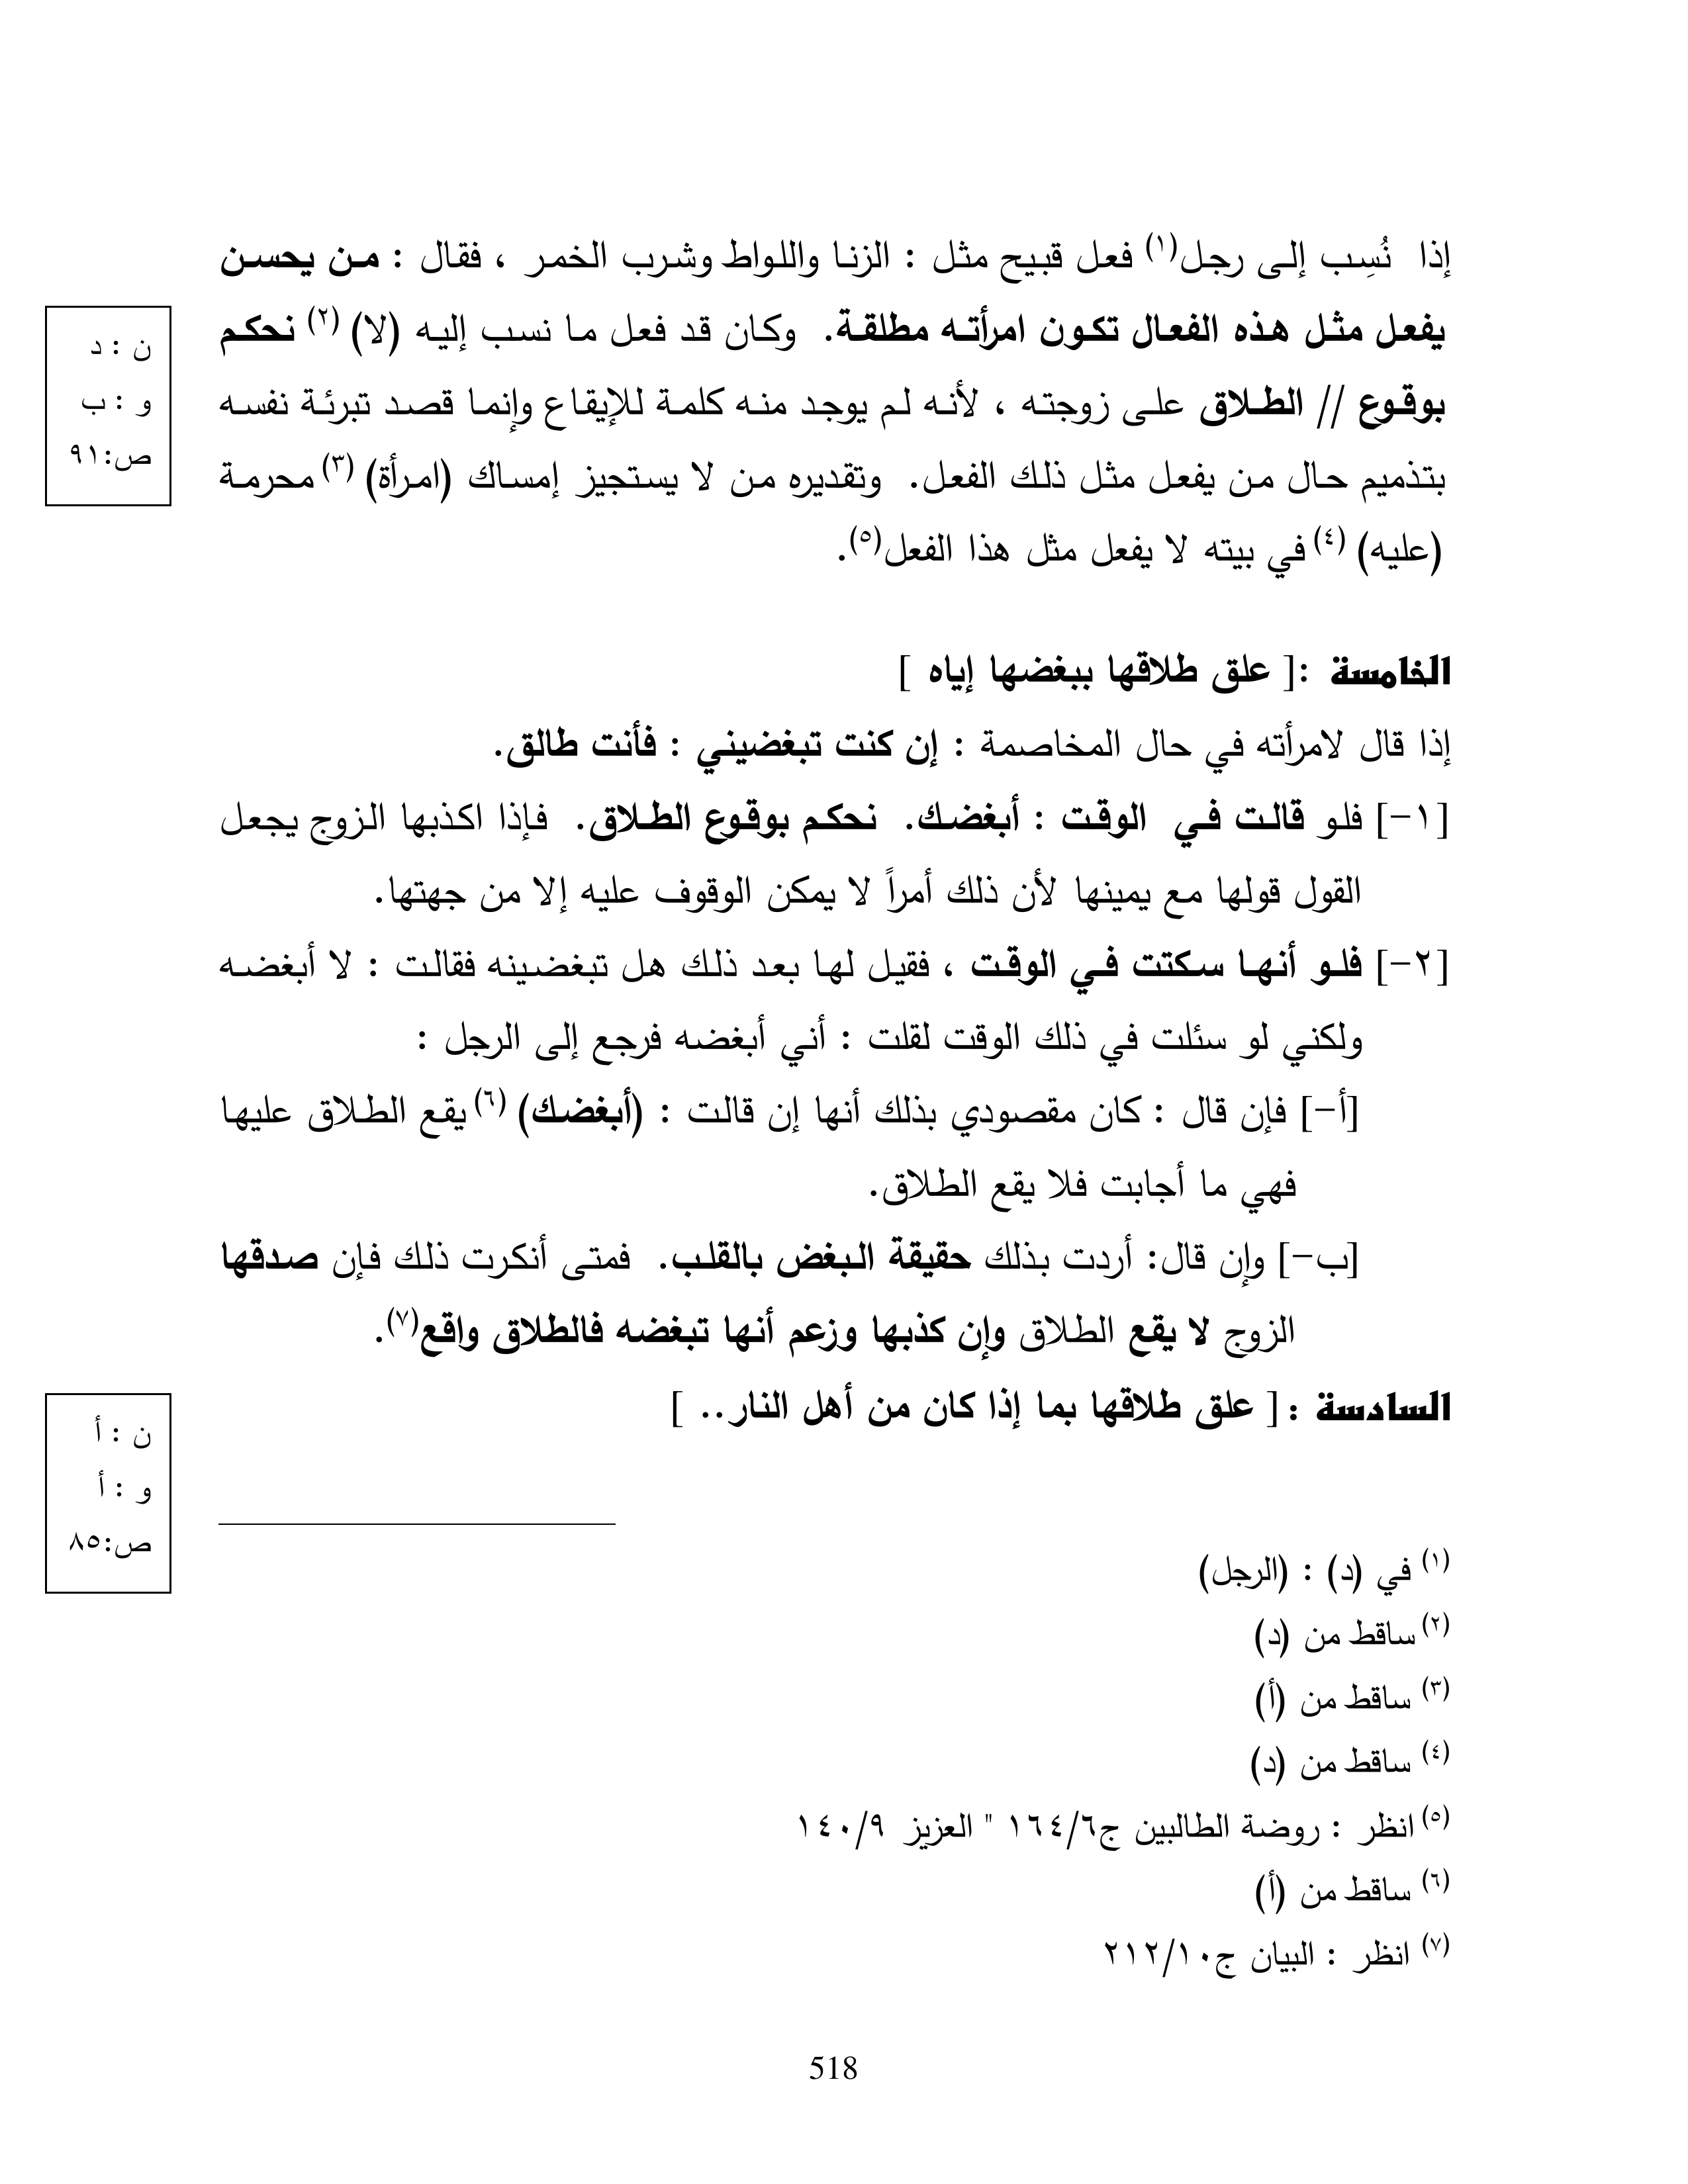 إذا نُسِب إلى رجل(١) فعل قبيح مثل : الزنا واللواط وشرب الخمر ، فقال : من يحسن
يفعل مثل هذه الفعال تكون امرأته مطلقة. وكان قد فعل ما نسب إليه (لا) (٢) نحكم
بوقوع // الطلاق على زوجته ، لأنه لم يوجد منه كلمة للإيقاع وإنما قصد تبرئة نفسه
بتذميم حال من يفعل مثل ذلك الفعل. وتقديره من لا يستجيز إمساك (امرأة) (٣) محرمة
(عليه) (٤) في بيته لا يفعل مثل هذا الفعل(٥).
ن : د
و : ب
ص:٩١
الخامسة :[ علق طلاقها ببغضها إياه ]
إذا قال لامرأته في حال المخاصمة : إن كنت تبغضيني : فأنت طالق.
[١-] فلو قالت في الوقت : أبغضك. نحكم بوقوع الطلاق. فإذا اكذبها الزوج يجعل
القول قولها مع يمينها لأن ذلك أمراً لا يمكن الوقوف عليه إلا من جهتها.
[٢-] فلو أنها سكتت في الوقت ، فقيل لها بعد ذلك هل تبغضينه فقالت : لا أبغضه
ولكني لو سئلت في ذلك الوقت لقلت : أني أبغضه فرجع إلى الرجل :
[أ-] فإن قال : كان مقصودي بذلك أنها إن قالت : (أبغضك) (٦) يقع الطلاق عليها
فهي ما أجابت فلا يقع الطلاق.
[ب-] وإن قال: أردت بذلك حقيقة البغض بالقلب. فمتى أنكرت ذلك فإن صدقها
الزوج لا يقع الطلاق وإن كذبها وزعم أنها تبغضه فالطلاق واقع(٧).
السادسة : [ علق طلاقها بما إذا كان من أهل النار.. ]
ن : أ
و : أ
ص:٨٥
(١) في (د) : (الرجل)
(٢) ساقط من (د)
(٣) ساقط من (أ)
(٤) ساقط من (د)
(٥) انظر : روضة الطالبين ج٦/١٦٤ " العزيز ٩/١٤٠
(٦) ساقط من (أ)
(٧) انظر : البيان ج١٠/٢١٢
518